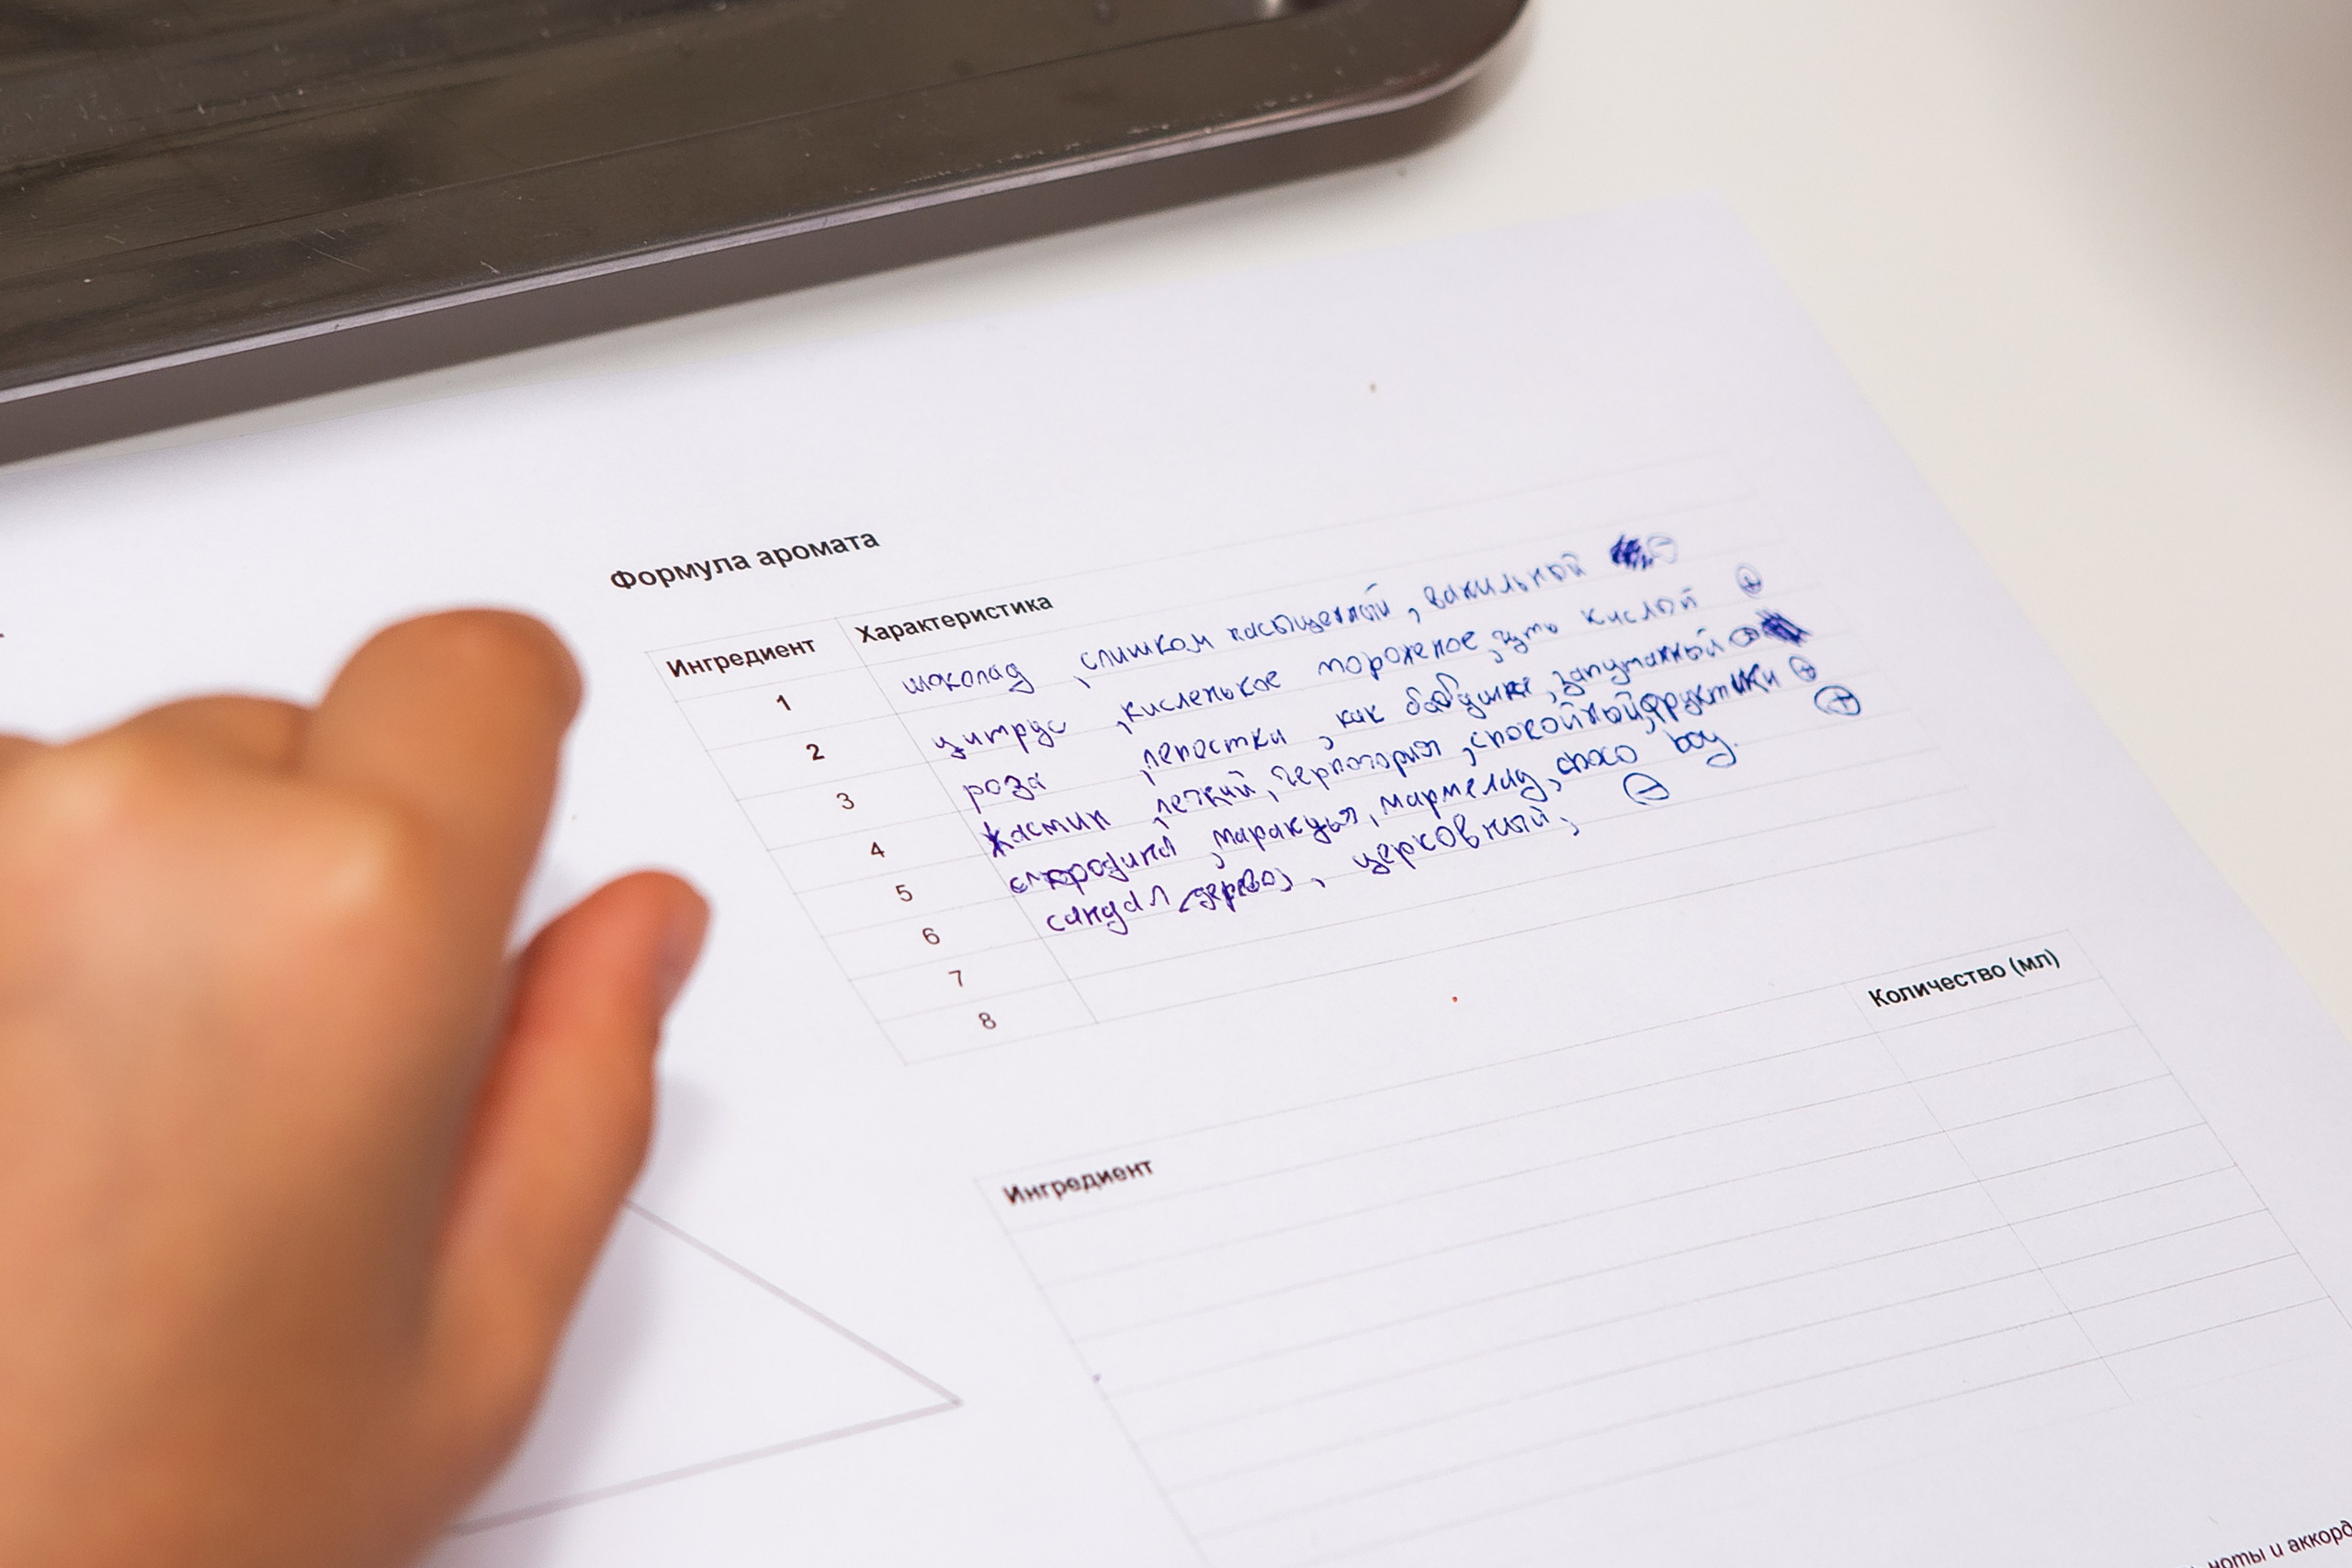 Формула аромата
Ингредиент Характеристика
1 шоколад, слишком насыщенный, ванильный ⊖
2 цитрус, кисленькое мороженое, чуть кислой ⊕
3 роза, лепостки, как бабушка, запутанный ⊖
4 жасмин, легкий, герпотория, спокойный, фруктики ⊕
5 смородина, маракуья, мармелад, choco boy. ⊕
6 сандал (дерево), церковный, ⊖
7
8
Ингредиент Количество (мл)
ноты и аккорд